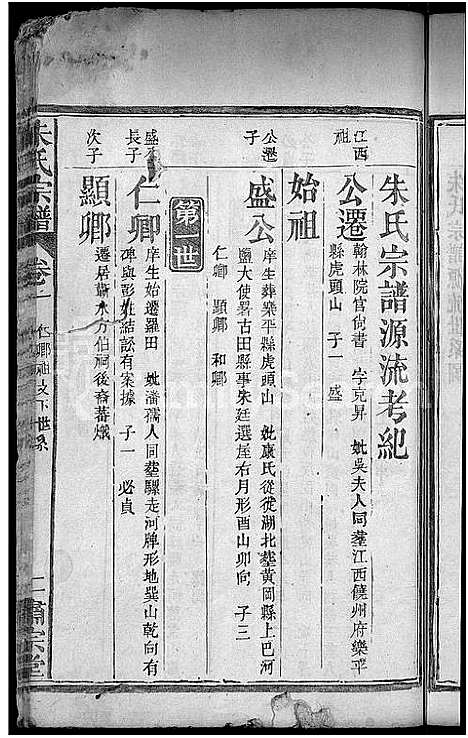 朱氏宗譜源流考紀
江西
祖
公遷
翰林院官尙書 字克昇 妣吳夫人同塟江西饒州府樂平
縣虎頭山 子一 盛
始祖
公遷
子
盛公
庠生葬樂平縣虎頭山 妣康氏從徙湖北塟黃岡縣上巴河
鹽大使署古田縣事朱廷選屋右月形酉山卯向 子三
仁卿 顯卿 和卿
第一世
盛公
長子
仁卿
庠生始遷羅田 妣潘孺人同塟騾走河牌形地巽山乾向有
碑與彭姓結訟有案據 子一 必貞
次子
顯卿
遷居蘄水方伯祠後裔蕃熾
朱氏宗譜
卷一
仁卿祖支下世系
一
肅宗堂